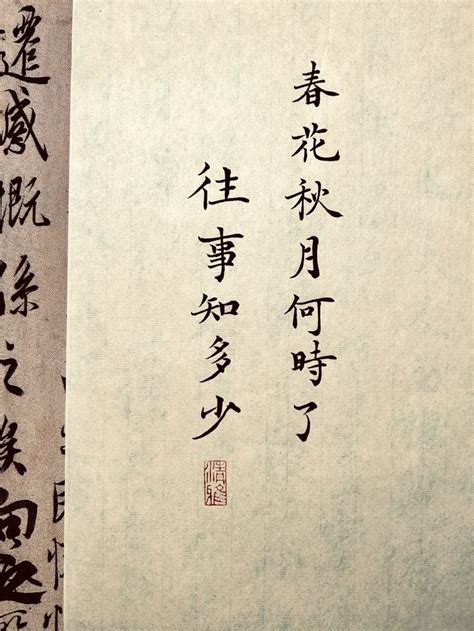 春花秋月何時了
往事知多少
遷感慨係之矣向之